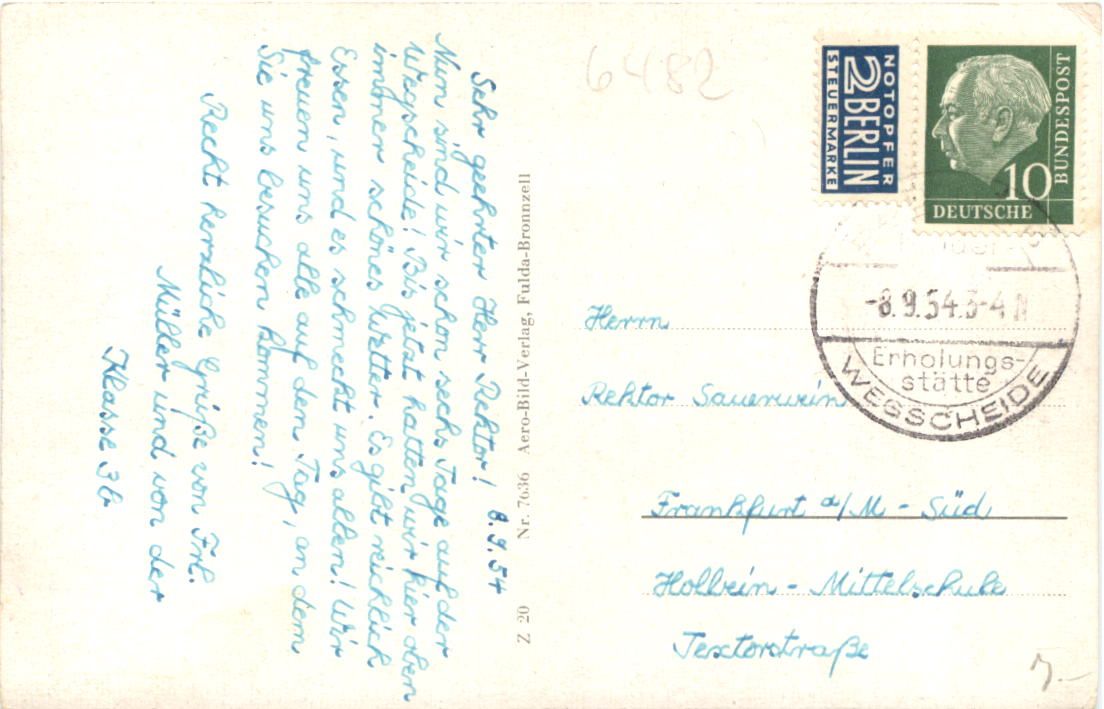 Sehr geehrter Herr Rektor! 8.9.54
Nun sind wir schon sechs Tage auf der
Wegscheide! Bis jetzt hatten wir hier oben
immer schönes Wetter. Es gibt reichlich
Essen, und es schmeckt uns allen! Wir
freuen uns alle auf den Tag, an dem
Sie uns besuchen kommen!
Recht herzliche Grüße von Frl.
Müller und von der
Klasse 3b
Z 20 Nr. 7636 Aero-Bild-Verlag, Fulda-Bronnzell
6482
NOTOPFER
2 BERLIN
STEUERMARKE
BUNDESPOST
10
DEUTSCHE
-8.9.54.3-4
Erholungs-
stätte
WEGSCHEIDE
Herrn
Rektor Sauerwein
Frankfurt a/M - Süd
Holbein - Mittelschule
Textorstraße